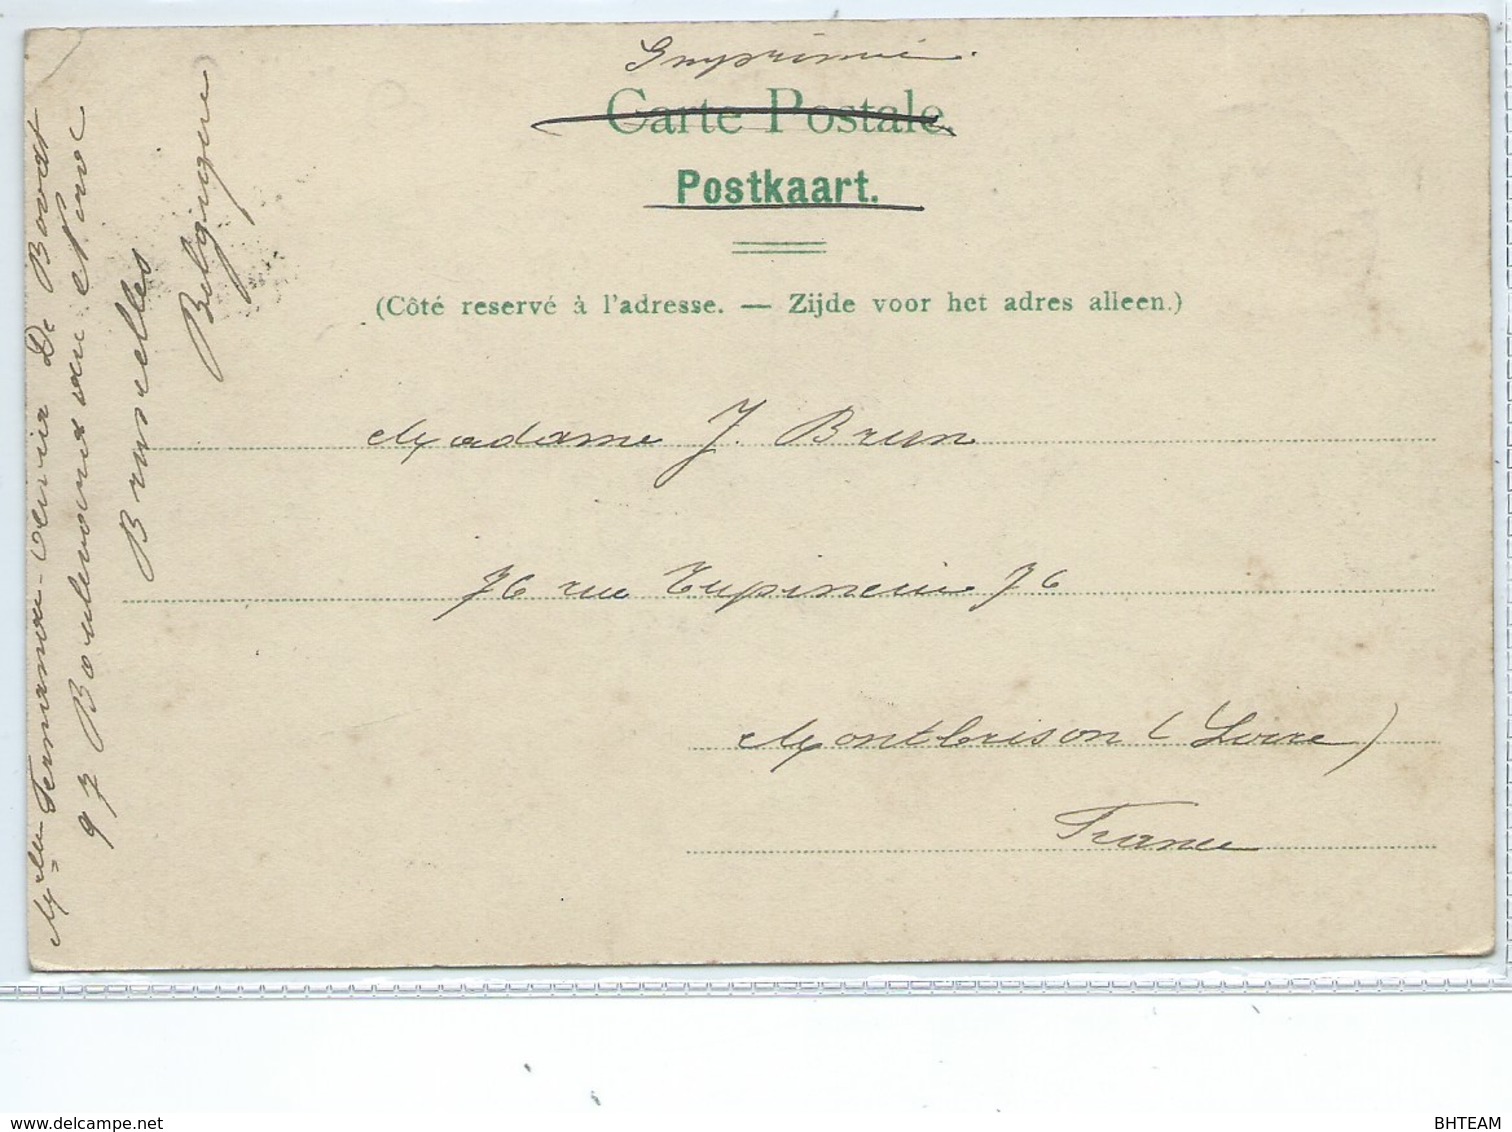 Imprimé.
Carte Postale.
Postkaart.
(Côté reservé à l'adresse. — Zijde voor het adres alleen.)
Madame J. Brun
76 rue Tupinerie 76
Montbrison (Loire)
France
De Bondt
97 Boulevard du
Bruxelles
Belgique
delcampe.net
BHTEAM